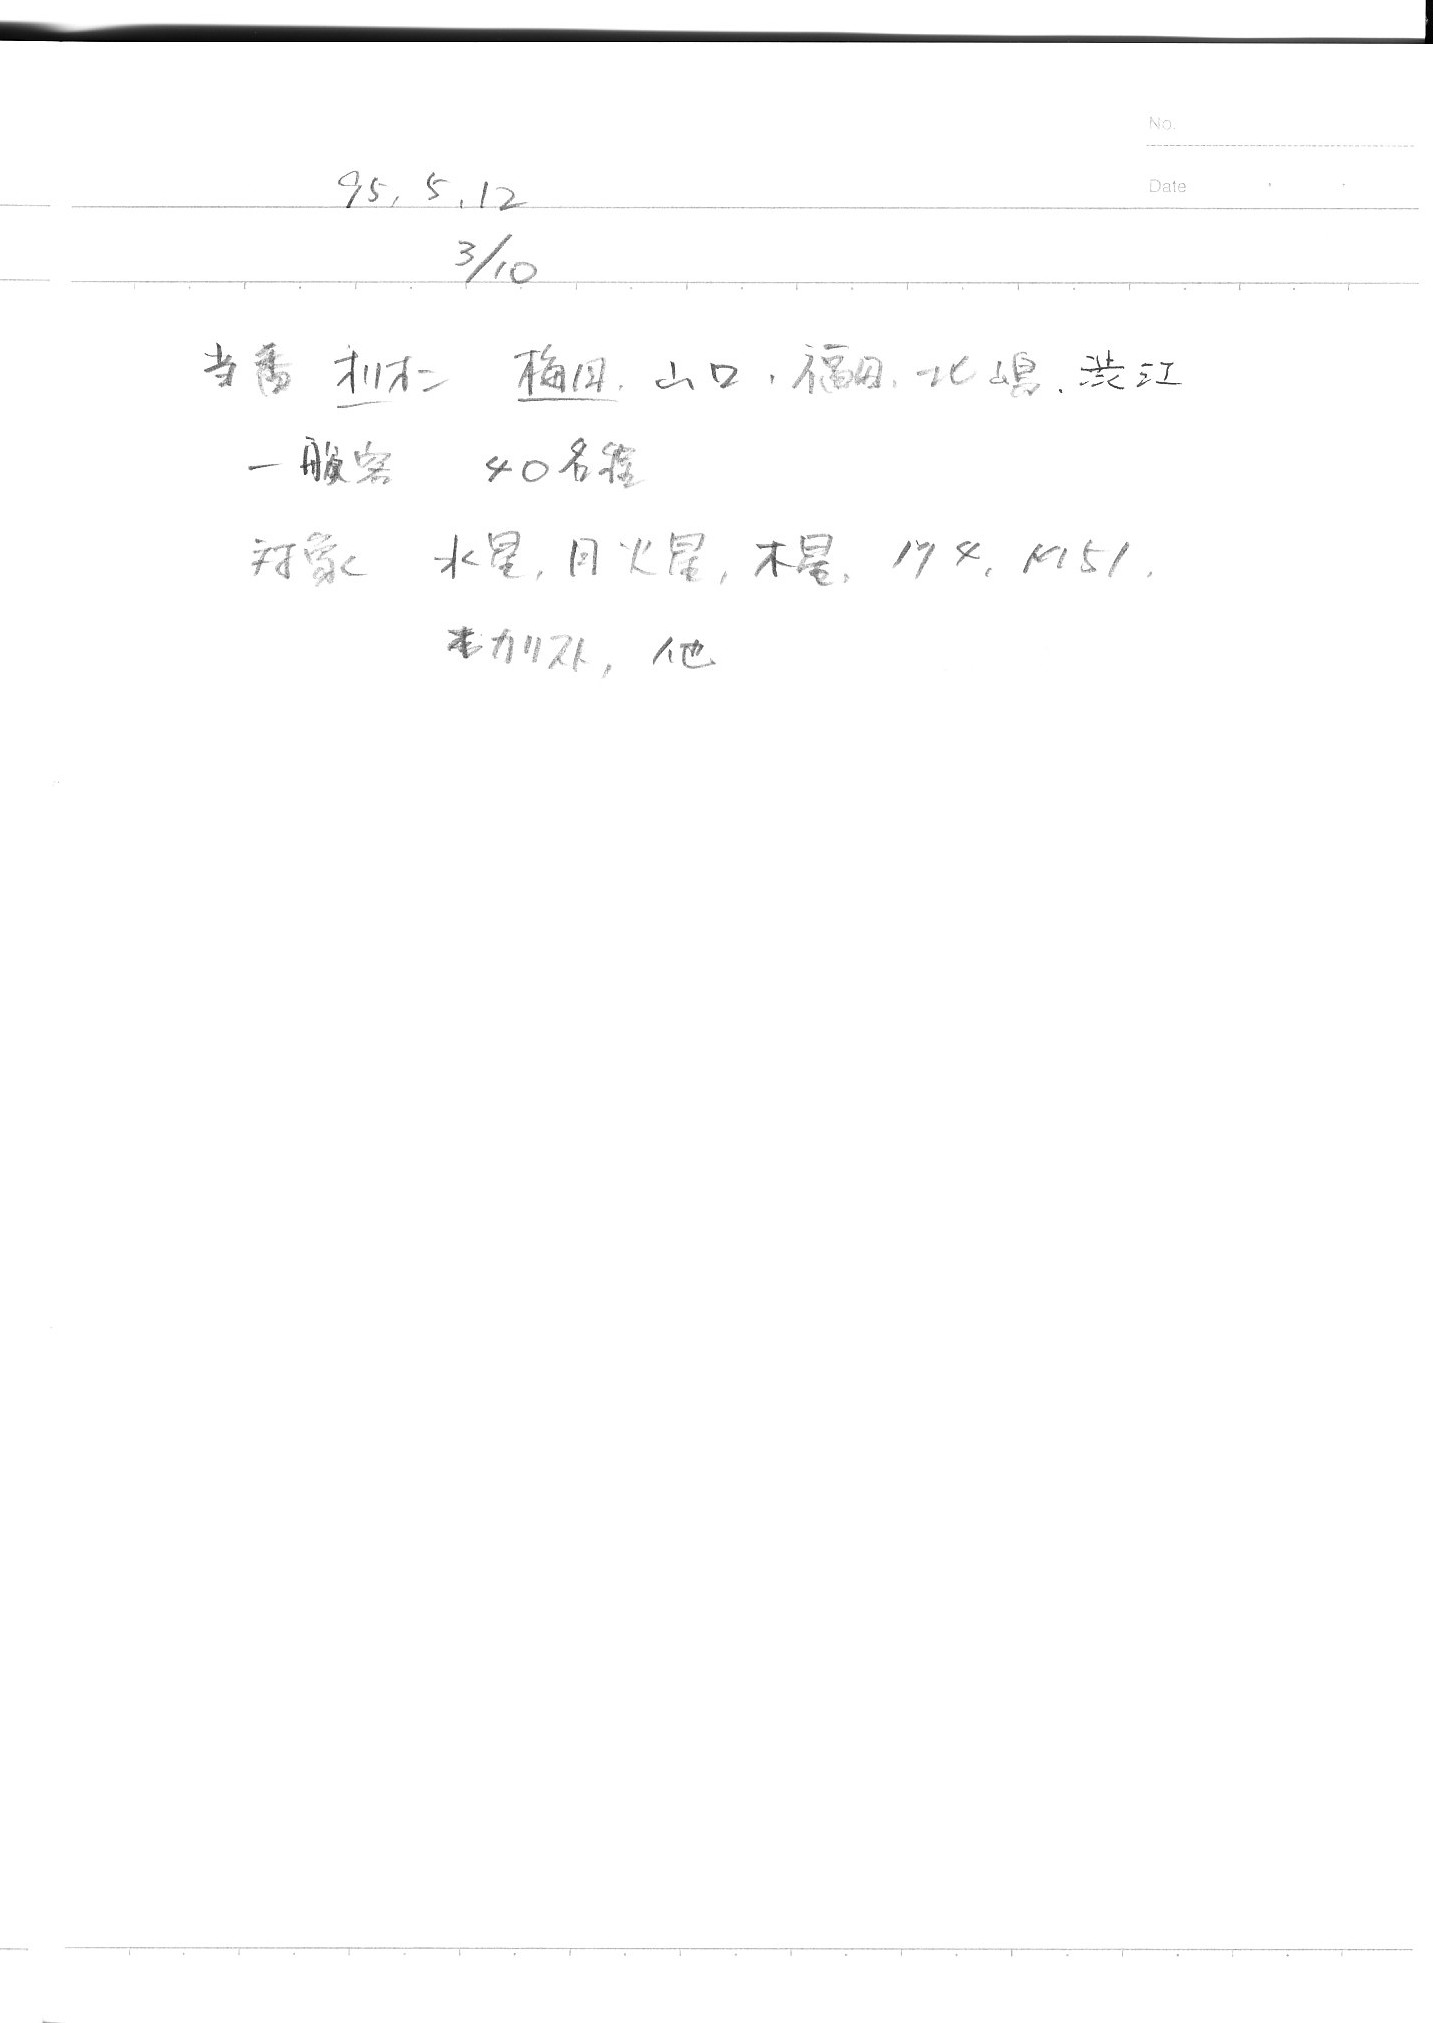 No.
95, 5, 12
Date
3/10
当番 オリオン 梅田. 山口. 福田. 北嶋. 渋江
一般客 40名程
対象 水星, 月 火星, 木星, M4, M51,
カリスト, 他